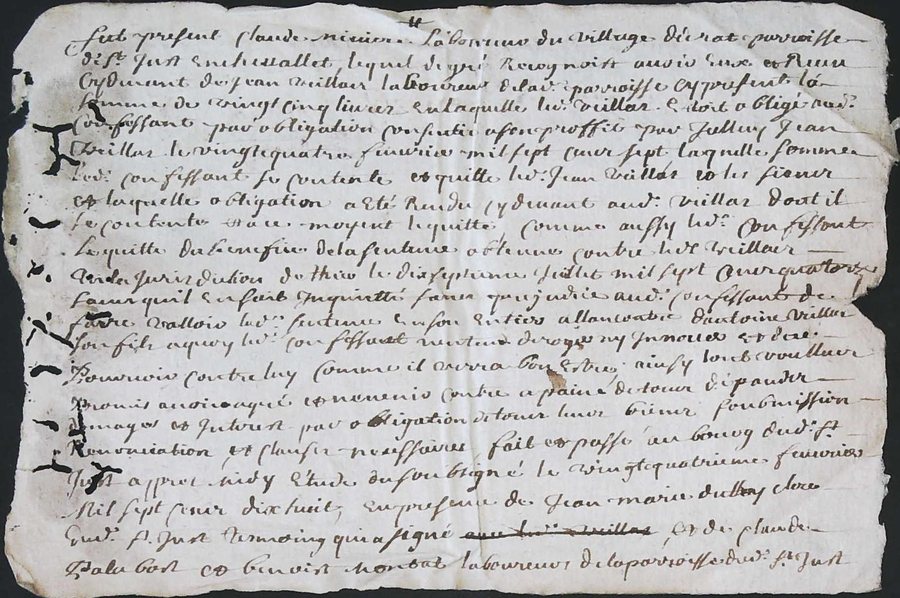 fut present Claude miniere Laboureur du village de crat parroisse
de St Just Enchevallet lequel de gré Recognoist avoir Eu et Receu
Cydevant de Jean veillas laboureur de lad. parroisse Cy present la
somme de vingt cinq livres en laquelle led. veillas Estoit obligé aud.
confessant par obligation consentie a son proffit par Jean
veillas le vingtquatre feuvrier mil sept cent sept laquelle somme
led. confessant se contente et quitte led. Jean veillas et les siens
et laquelle obligation a Eté Rendu cydevant aud. veillas dont il
se contente et au moyent le quitte comme aussy led. confessant
le quitte du benefice de la sentence obtenue contre led. veillas
en la Jurisdiction de thiers le dixseptieme Juillet mil sept cent quatorze
sans quil en soit Inquietté sans prejudice aud. confessant de
faire valloir lad. sentence en son entier allencontre dantoine veillas
son fils a quoy led. confessant nentend deroger ny Innover et de se
Pourvoir contre luy comme il verra bon Estre ainsy lont voullu
promis avoir agré et ne venir contre a paine de tous dépands
domages et Interest par obligation de tous leurs biens soubmission
Renonciation et clauses necessaires fait et passé au bourg dud. St
Just appres midy Etude du soubsigné le vingtquatrieme feuvrier
Mil sept cent dixhuit, En presence de Jean marie clerc
dud. St Just temoing qui a signé avec led. veillas et de Claude
et benoist laboureurs de la parroisse dud. St Just